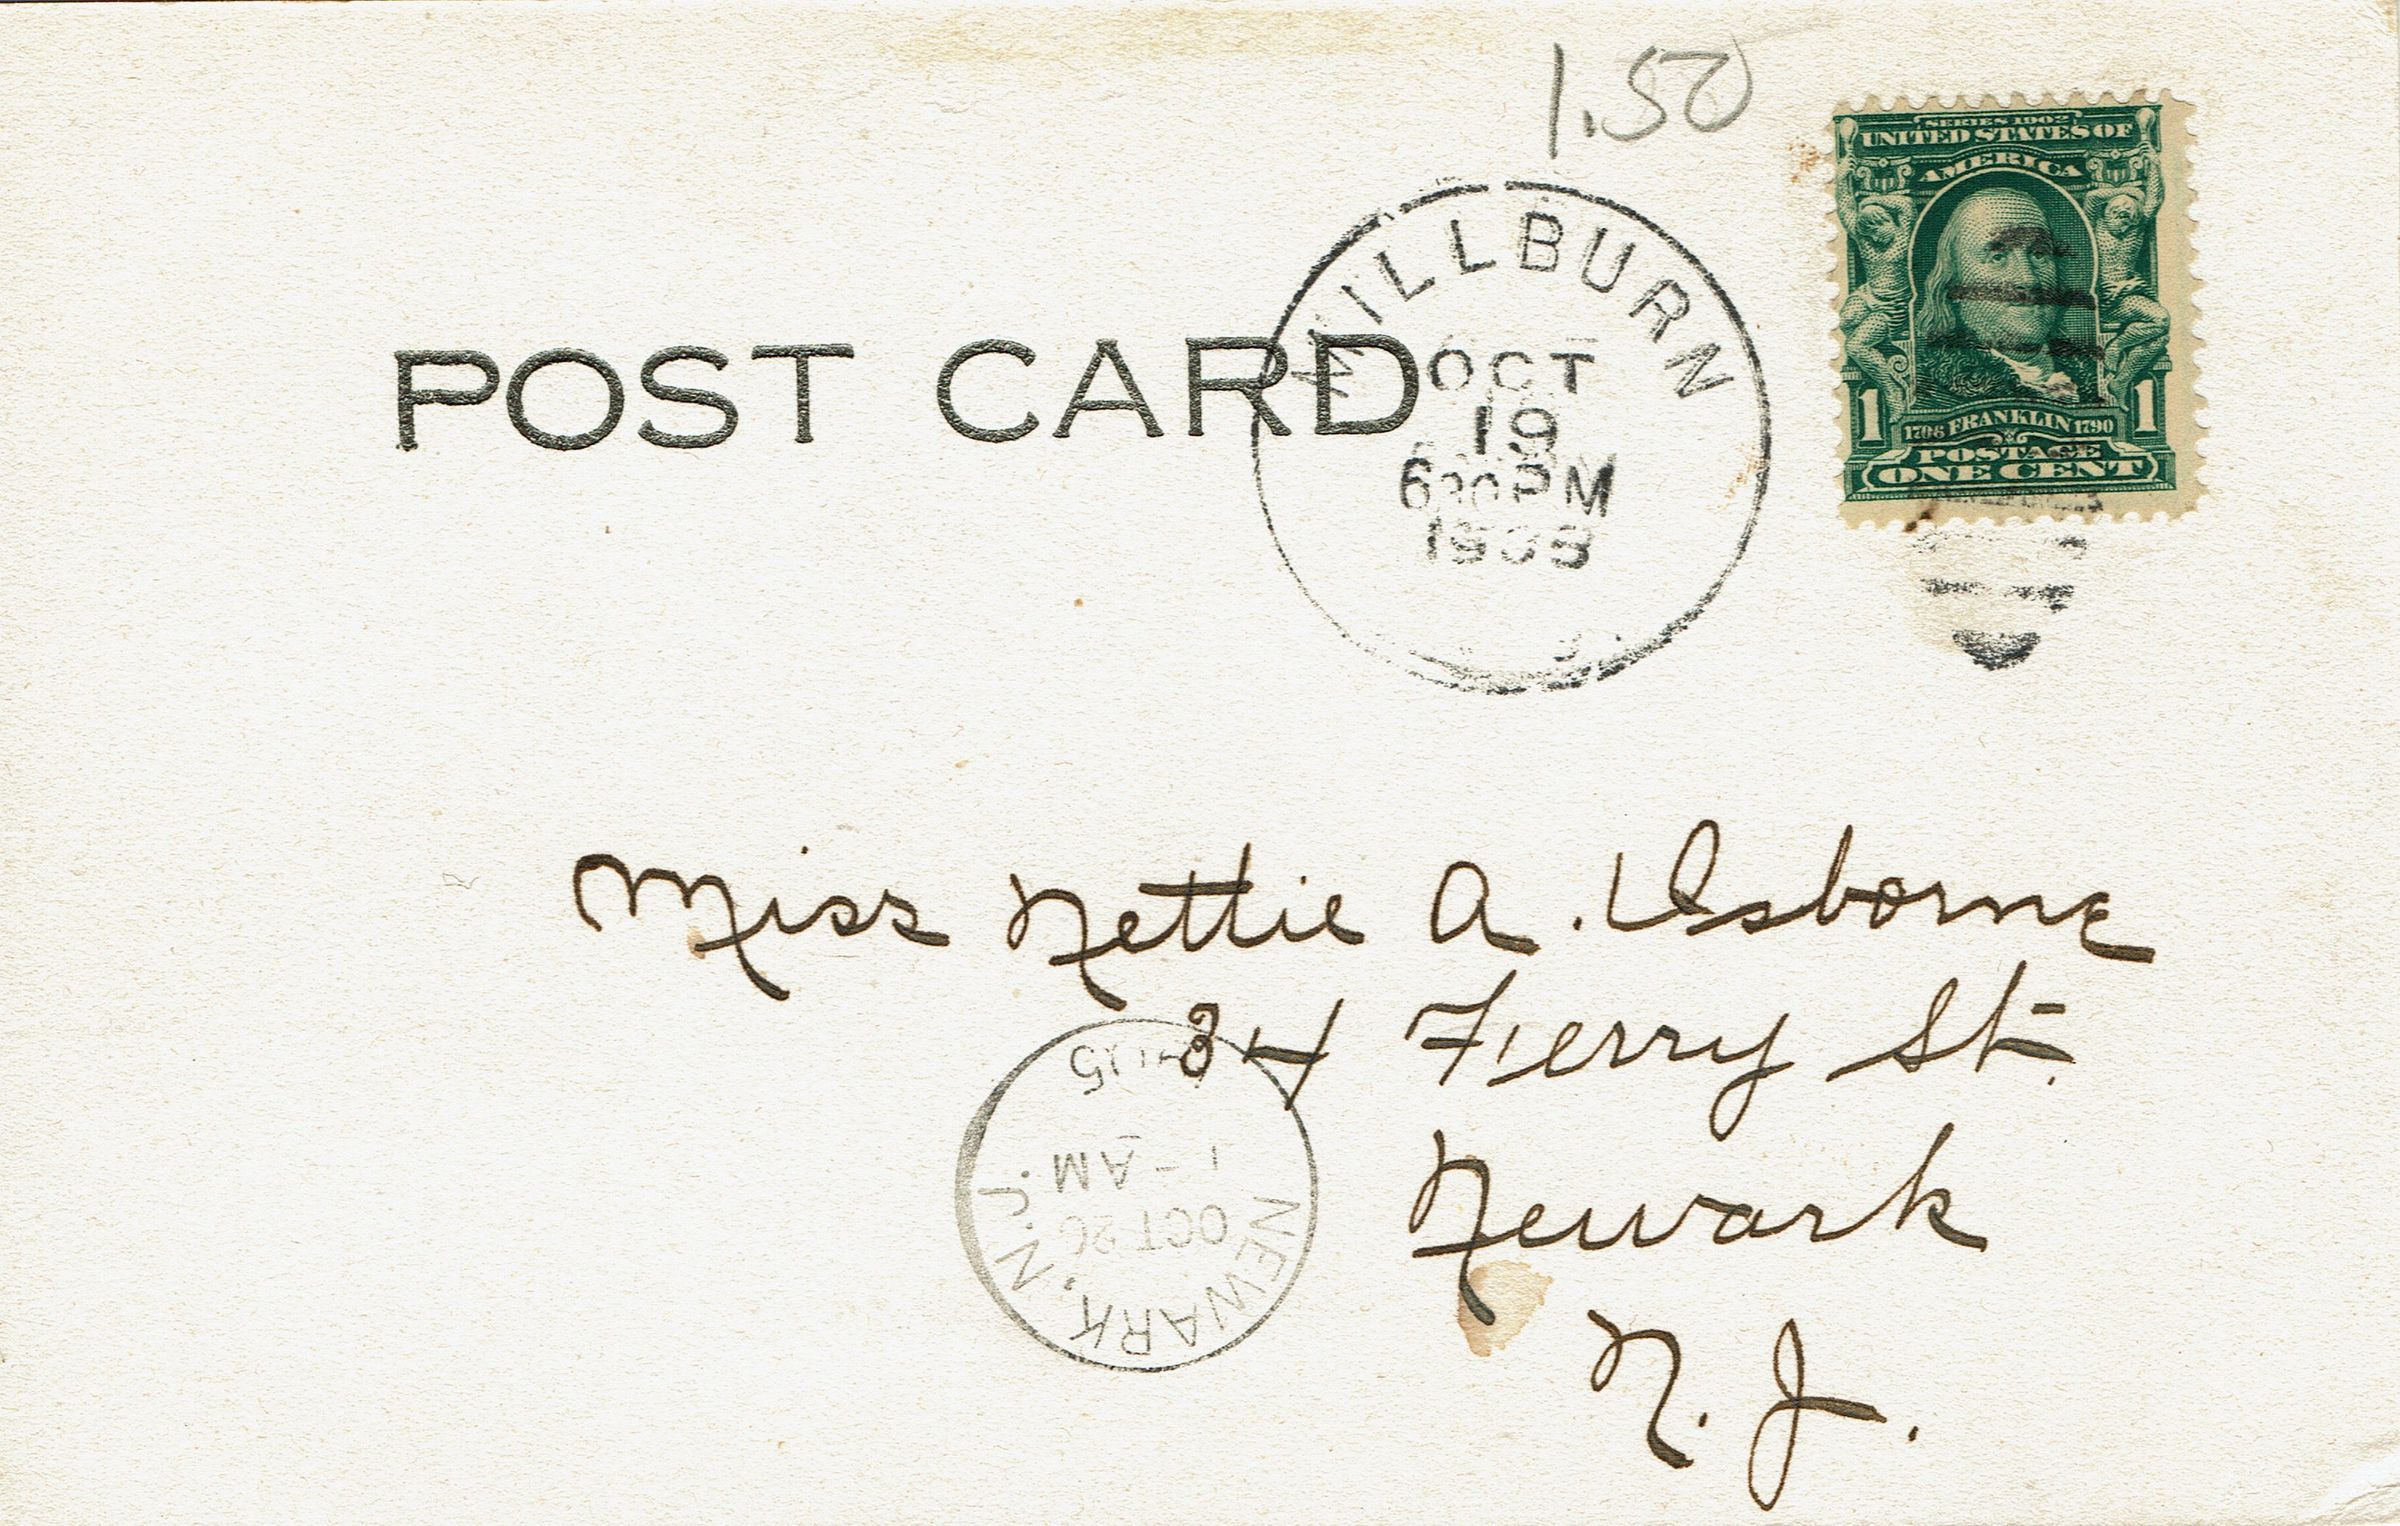 1.50
SERIES 1902
UNITED STATES OF
AMERICA
1 1706 FRANKLIN 1790 1
POSTAGE
ONE CENT
POST CARD
MILLBURN
OCT
19
630 PM
1908
Miss Nettie A. Osborne
34 Ferry St.
Newark
N. J.
NEWARK, N.J.
OCT 20
1-AM